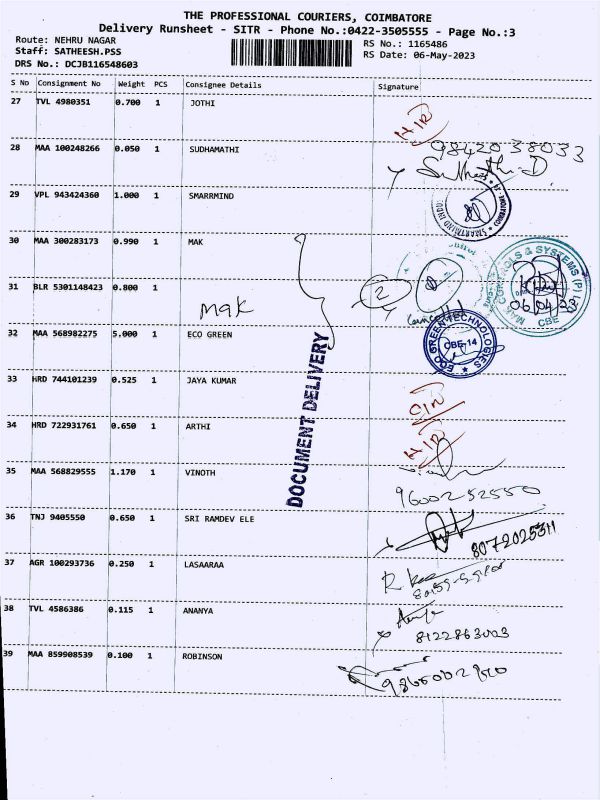 THE PROFESSIONAL COURIERS, COIMBATORE
Delivery Runsheet - SITR - Phone No.:0422-3505555 - Page No.:3
Route: NEHRU NAGAR
Staff: SATHEESH.PSS
DRS No.: DCJB116548603
RS No.: 1165486
RS Date: 06-May-2023
S No Consignment No Weight PCS Consignee Details Signature
27 TVL 4980351 0.700 1 JOTHI
28 MAA 100248266 0.050 1 SUDHAMATHI
9842038033
29 VPL 943424360 1.000 1 SMARRMIND
30 MAA 300283173 0.990 1 MAK
MAK CONTROLS & SYSTEMS (P) LTD
CBE
31 BLR 5301148423 0.800 1
mak
2
32 MAA 568982275 5.000 1 ECO GREEN
ECO GREEN TECHNOLOGIES
CBE-14
DOCUMENT DELIVERY
33 HRD 744101239 0.525 1 JAYA KUMAR
34 HRD 722931761 0.650 1 ARTHI
35 MAA 568829555 1.170 1 VINOTH
9600252550
36 TNJ 9405550 0.650 1 SRI RAMDEV ELE
8072025311
37 AGR 100293736 0.250 1 LASAARAA
38 TVL 4586386 0.115 1 ANANYA
8122863003
39 MAA 859908539 0.100 1 ROBINSON